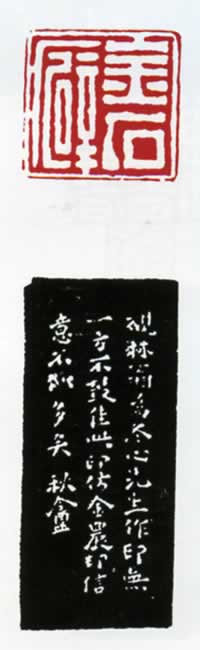 金石
癖
硯林翁為冬心先生作印無
一方不致佳此印仿金農印信
意不多矣 秋盦